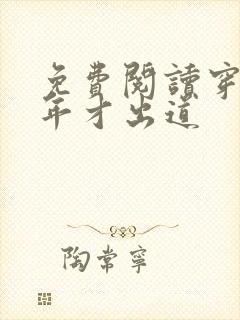 免費閱讀穿
年才出道
陶常寧